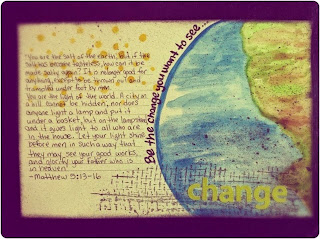 "You are the salt of the earth, but if the
salt has become tasteless, how can it be
made salty again? It is no longer good for
anything, except to be thrown out and
trampled under foot by men.
You are the light of the world. A city on
a hill cannot be hidden, nor does
anyone light a lamp and put it
under a basket, but on the lampstand
and it gives light to all who are
in the house. Let your light shine
before men in such a way that
they may see your good works,
and glorify your father who is
in heaven."
-Matthew 5:13-16
Be the change you want to see...
change